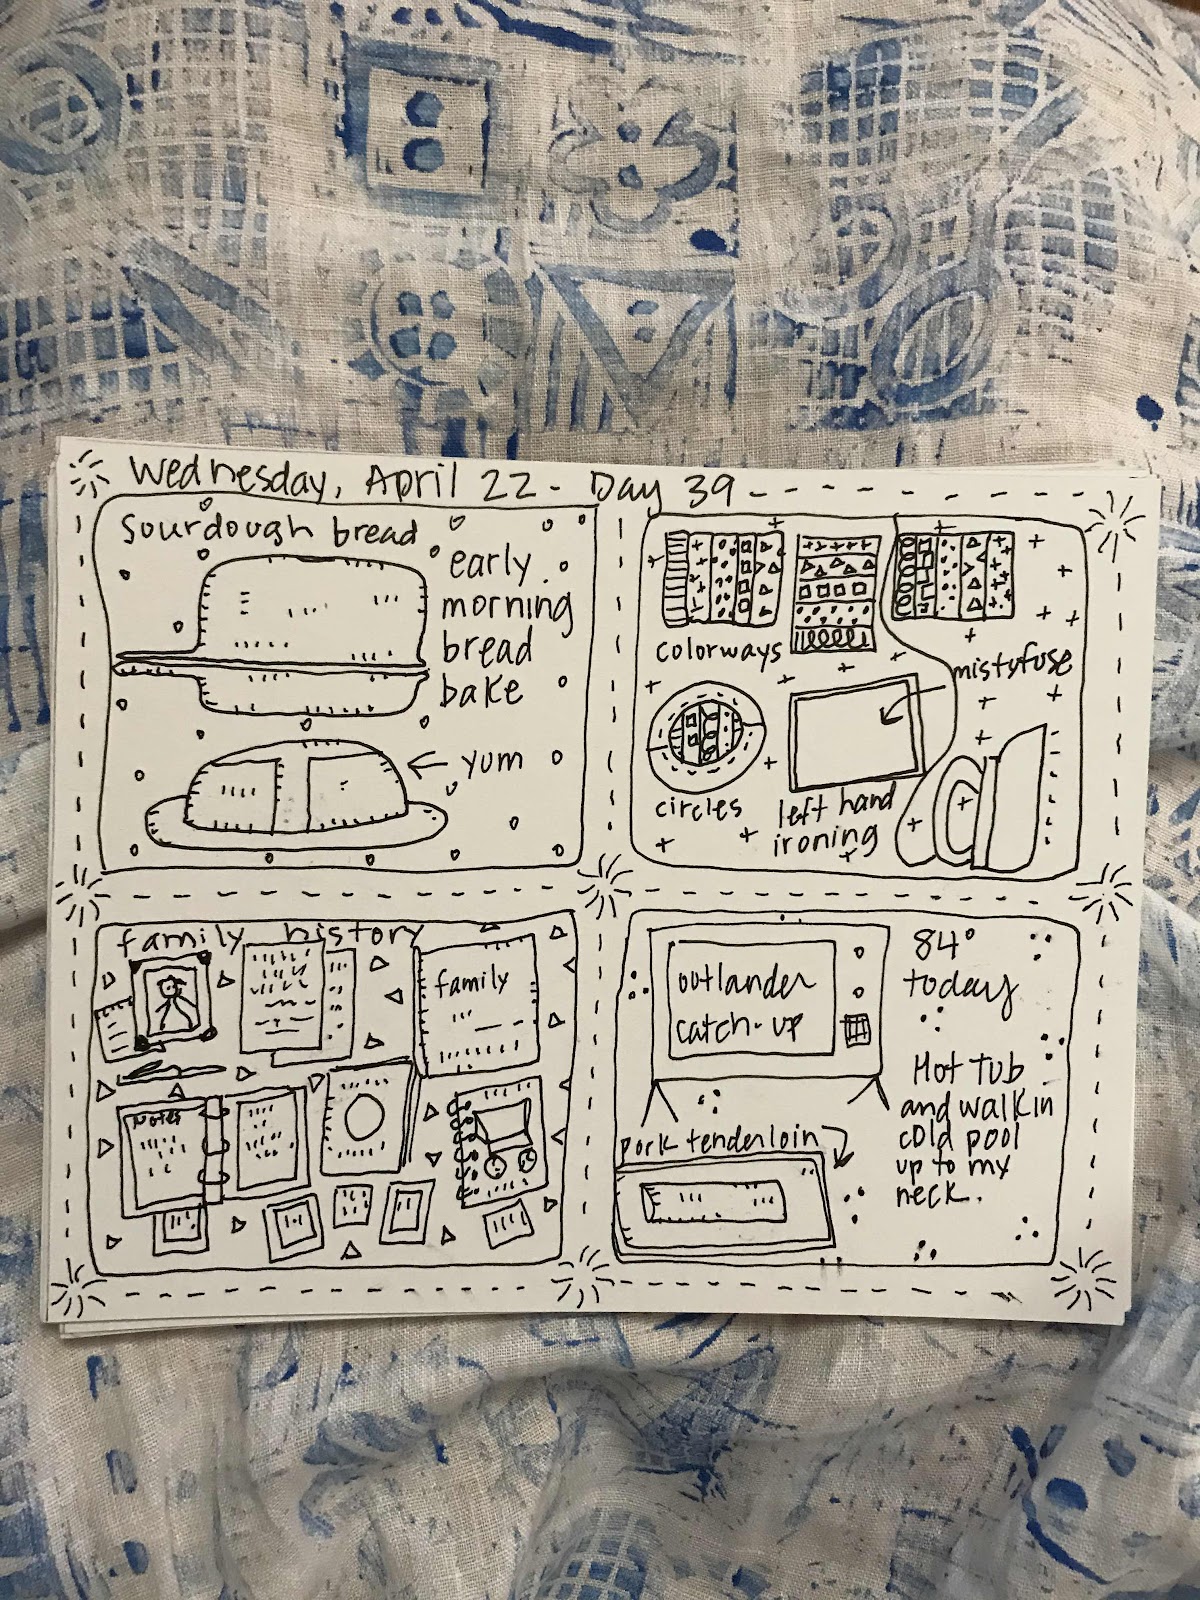 Wednesday, April 22 - Day 39
Sourdough bread
early
morning
bread
bake
yum
colorways
mistyfuse
circles
left hand
ironing
family history
family
Notes
outlander
catch-up
84°
today
Hot Tub
and walk in
cold pool
up to my
neck.
pork tenderloin